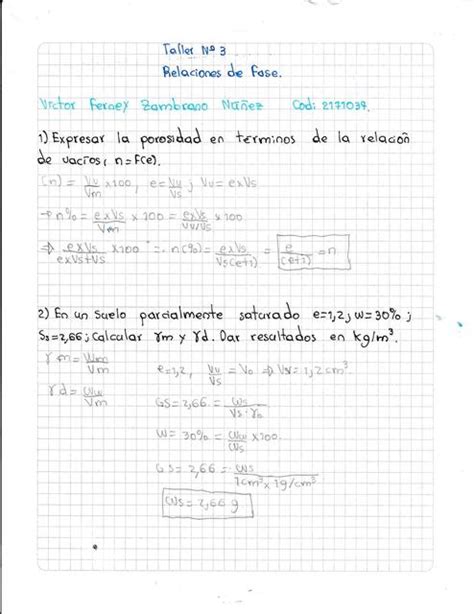 Taller Nº 3
Relaciones de Fase.
Victor Ferney Zambrano Nuñez Cod: 2171039.
1) Expresar la porosidad en terminos de la relación
de vacios, n=F(e).
(n) = Vv/Vm x100, e= Vv/Vs ; Vv= exVs
→ n% = exVs/Vm x 100 = exVs/Vv/Vs x100
⇒ exVs/exVs+Vs x100 = ∴ n(%) = exVs/Vs(e+1) = e/(e+1) = n
2) En un suelo parcialmente saturado e=1,2; w=30% ;
Ss=2,66; Calcular γm y γd. Dar resultados en kg/m³.
γm = Wm/Vm e=1,2, Vv/Vs = Vo ⇒ Vv= 1,2cm³
γd = Ww/Vm GS= 2,66 = Ws/Vs·γo
W= 30% = Ww/Ws x100.
GS= 2,66 = Ws/1cm³x1g/cm³
Ws= 2,66 g